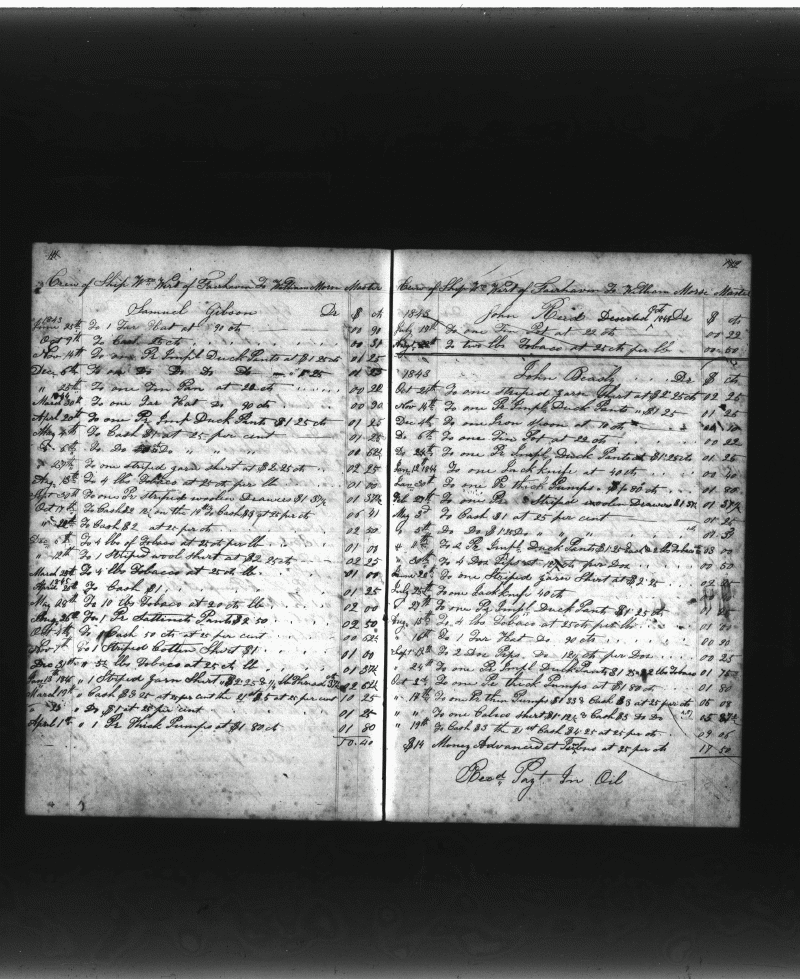 Crew of Ship Wm Wirt of Fairhaven To William Morse Master
Samuel Gibson Dr $ cts
1843
June 25th To 1 Tar Hat at 90 cts 00 90
Oct 9th To Cash 25 cts 00 31
Nov 14th To one Pr Impl Duck Pants at $1 25 cts 01 25
Decr 6th To one Do Do Do Do 1 25 01 25
" 25th To one Tin Pan at 22 cts 00 22
March 20th To one Tar Hat Do 90 cts 00 90
April 20th To one Pr Imp Duck Pants $1 25 cts 01 25
May To Cash $1 at 25 per cent 01 25
" 6th To Do Do " " " 00 62½
" 27th To one striped yarn shirt at $2.25 cts 02 25
Aug 15th To 4 lbs Tobaco at 25 cts per lb 01 00
Sept 30th To one Pr striped woolen Drawers $1 37½ 01 37½
Oct 17th To Cash in the 19th To Cash at 25 per cts 06 41
" To Cash $2 at 25 per cts 02 50
Dec To 4 lbs of Tobaco at 25 cts per lb 01 00
" 12th To 1 Striped wool shirt at $2 25 cts 02 25
March 25th To 4 lbs Tobacco at 25 cts lb 01 00
1845
April 25th To Cash $1 01 25
May 28th To 10 lbs Tobaco at 20 cts lb 02 00
Aug 26th To 1 Pr Sattinett Pants $2 50 02 50
Oct 4th To Cash 50 cts at 25 per cent 00 62½
Nov 7th To 1 Striped Cotten Shirt $1 01 00
Dec 31th " 5½ lbs Tobaco at 25 ct lb 01 37½
Jan 13th 1846 " 1 Striped Yarn Shirt at $2.25 & ½ lb Thread 02 62½
March 19th " Cash $3 25 at 25 per cent the 21st $5 at 25 per cent 10 25
" Do $1 at 25 per cent 01 25
April 1st " 1 Pr Thick Pumps at $1 80 cts 01 80
50.40
Crew of Ship Wm Wirt of Fairhaven To William Morse Master
1843 John Reid Deserted 1843 Dr $ cts
July 18th To one Tin Pot at 22 cts 00 22
To two lbs Tobaco at 25 cts per lb 00 50
1843 John Beady Dr $ cts
Oct 25th To one striped yarn Shirt at $2.25 cts 02 25
Nov 14th To one Pr Impl Duck Pants " $1 25 01 25
Dec 4th To one Iron spoon at 10 cts 00 10
Do 6th To one Tin Pot at 22 cts 00 22
Do 25th To one Pr Impl Duck Pants at $1.25 cts 01 25
Jany 12th 1844 To one Jack knife at 40 cts 00 40
Jan 30th To one Pr thick Pumps $1 80 cts 01 80
Feb 27th To one Pr Striped woolen Drawers $1 37½ 01 37½
May 3d To Cash $1 at 25 per cent 01 25
" Do Do " " "
" To 2 Pr Impl Duck Pants $1 25 & 2 lbs Tobaco 03 00
" 30th To 4 Doz Pipes at 12½ cts per Doz 00 50
June 20th To one Striped yarn Shirt at $2 25 02 25
July 25th To one Jack knif 40 cts
" 27th To one Pr Impl Duck Pants $1 25 cts 01 25
Aug 15th To 4 lbs Tobaco at 25 cts per lb 01 00
" 16th To 1 Tar Hat Do 90 cts 00 90
Sept 13th To 2 Doz Pips Do 12½ cts per Doz 00 25
" 25th To one Pr Impl Duck Pants $1 25 & 2 lbs Tobaco 01 75
Oct 8th To one Pr thick Pumps at $1 80 cts 01 80
" 18th To one Pr thin Pumps & Cash $3 at 25 per cts 05 08
" " To one Calico Shirt $1 12½ & Cash $3 Do Do
" 19th To Cash the 21st Cash $4.25 at 25 per cts 09 06
$14 Money Advanced at at 25 per cts 17 50
Recd Payt In Oil